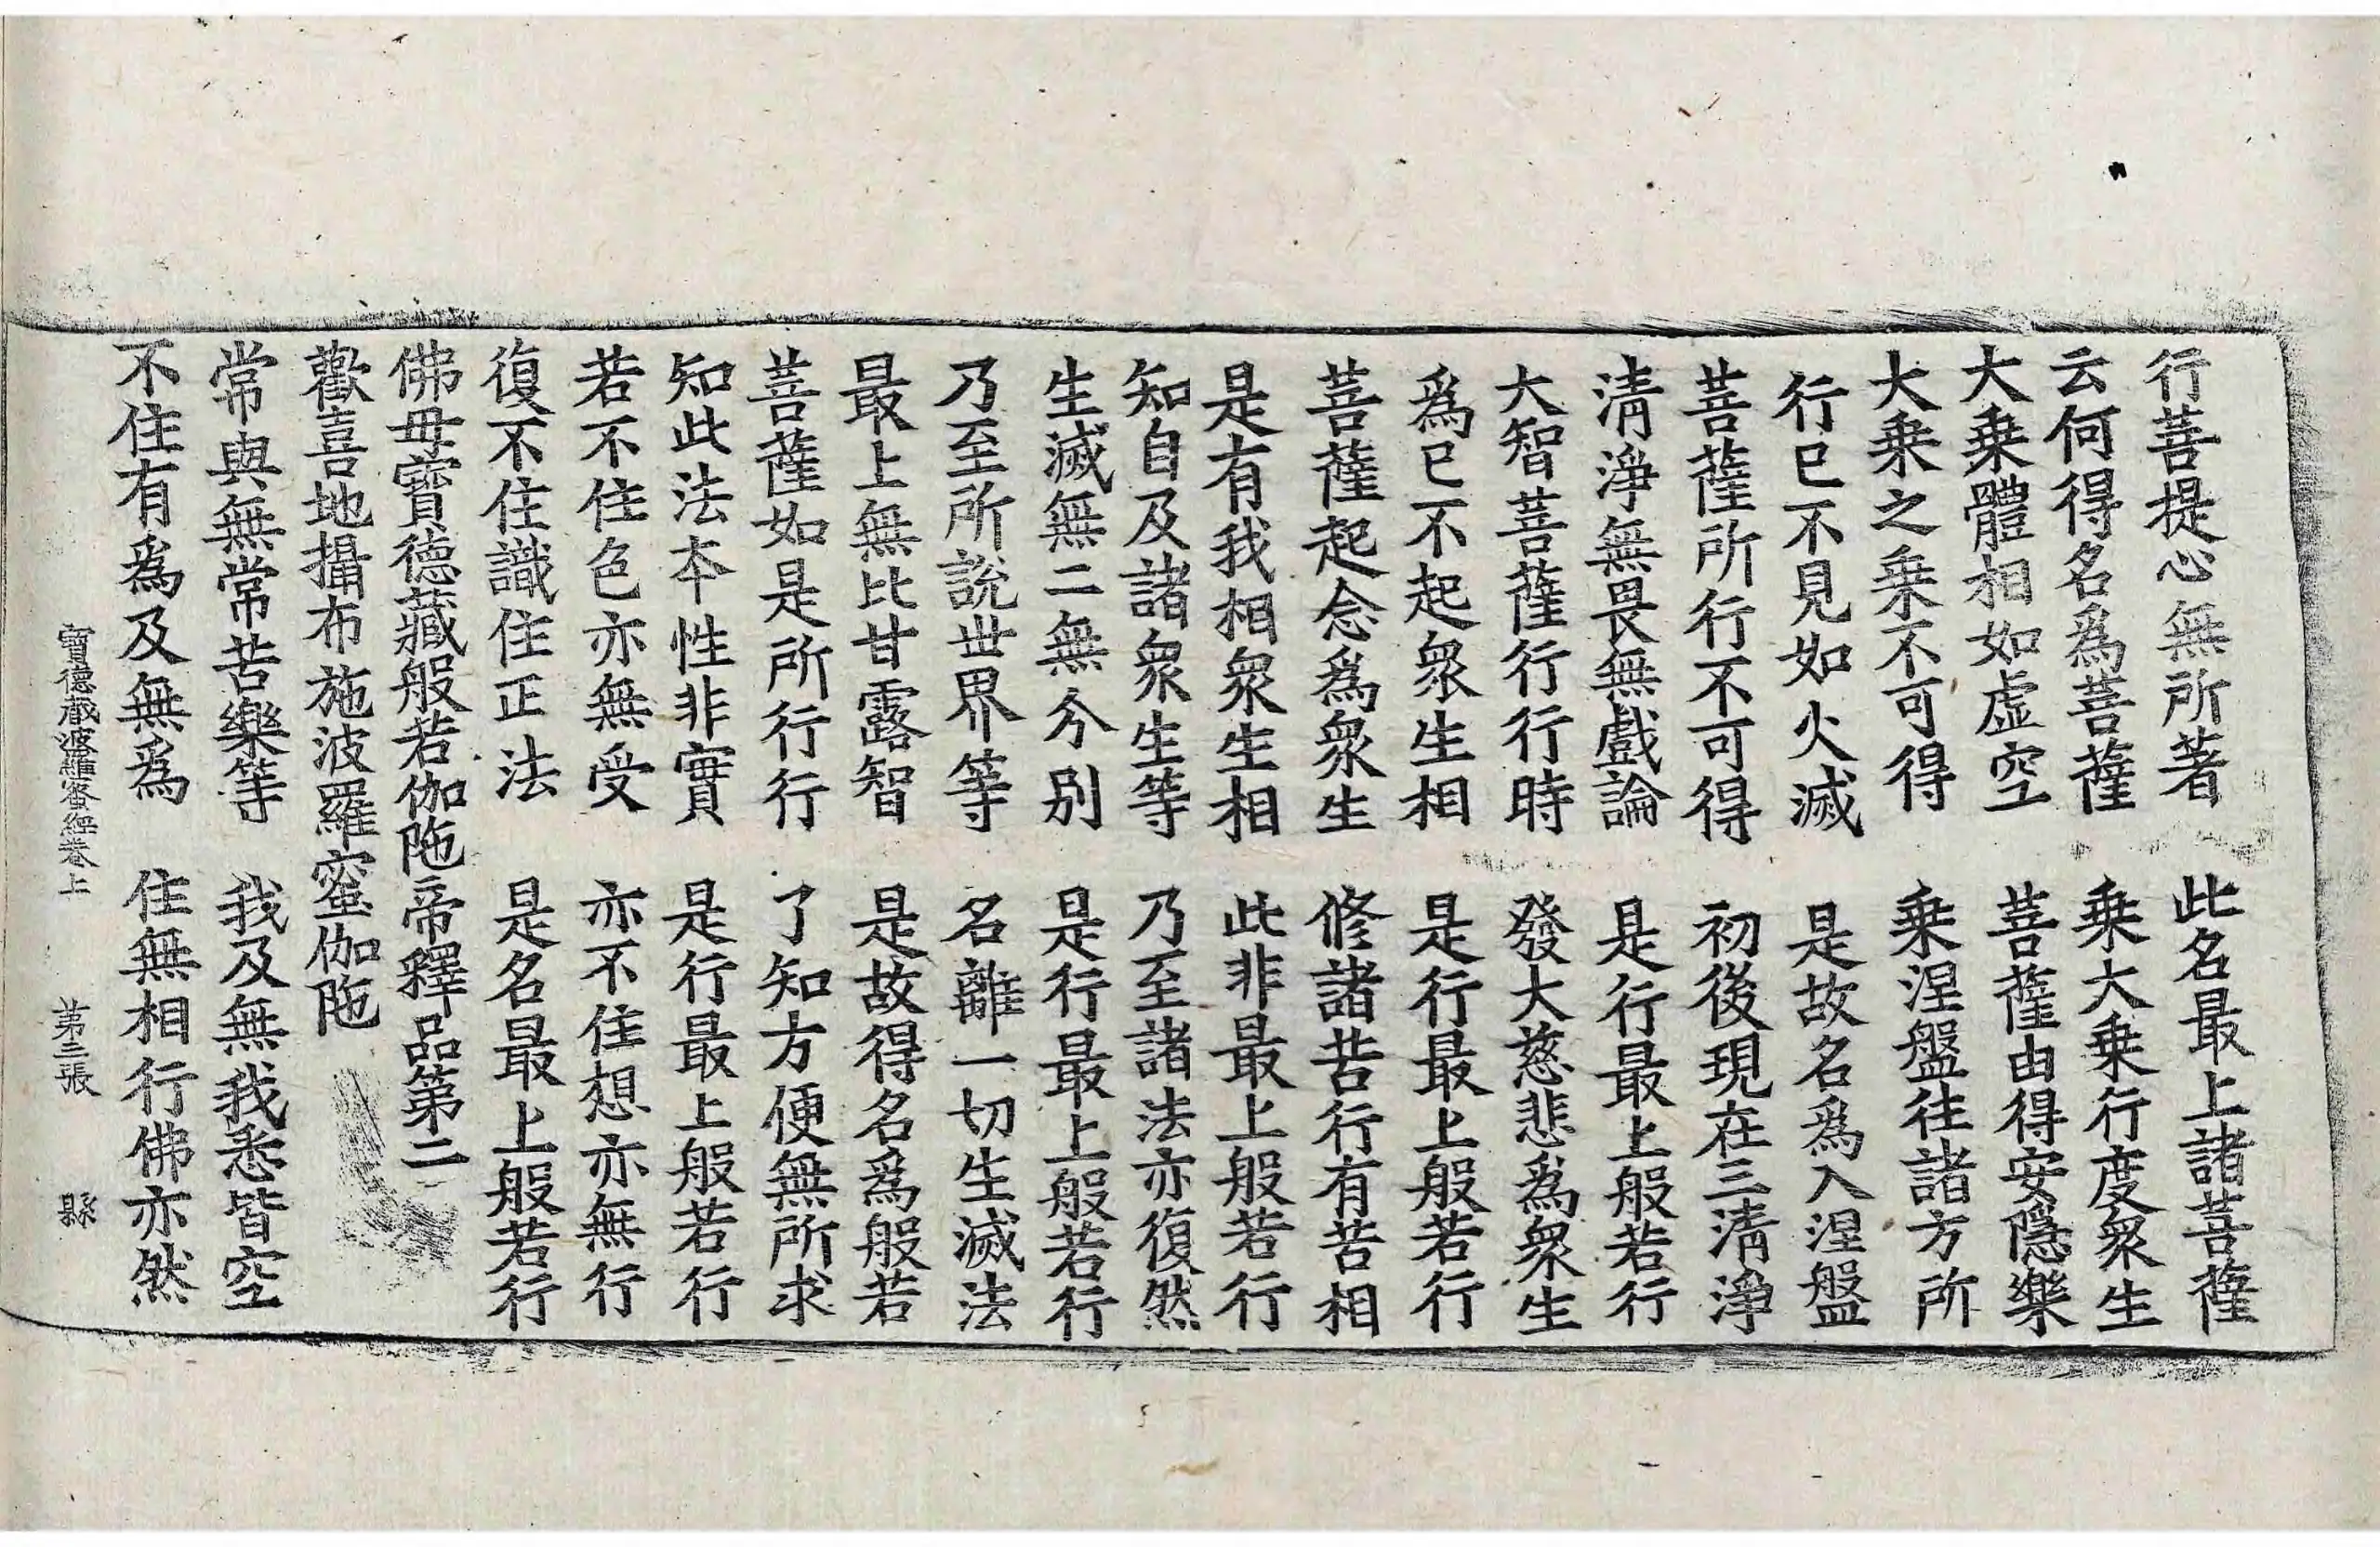 行菩提心無所著　此名最上諸菩薩
云何得名爲菩薩　乗大乗行度衆生
大乗體相如虛空　菩薩由得安隱樂
大乗之乗不可得　乗涅盤往諸方所
行已不見如火滅　是故名爲入涅盤
菩薩所行不可得　初後現在三清淨
清淨無畏無戲論　是行最上般若行
大智菩薩行行時　發大慈悲爲衆生
爲已不起衆生相　是行最上般若行
菩薩起念爲衆生　修諸苦行有苦相
是有我相衆生相　此非最上般若行
知自及諸衆生等　乃至諸法亦復然
生滅無二無分別　是行最上般若行
乃至所說世界等　名離一切生滅法
最上無比甘露智　是故得名爲般若
菩薩如是所行行　了知方便無所求
知此法本性非實　是行最上般若行
若不住色亦無受　亦不住想亦無行
復不住識住正法　是名最上般若行
佛母寶德藏般若伽陁帝釋品第二
歡喜地攝布施波羅蜜伽陁
常與無常苦樂等　我及無我悉皆空
不住有爲及無爲　住無相行佛亦然
寶德藏波羅蜜經卷上　第三張　縣